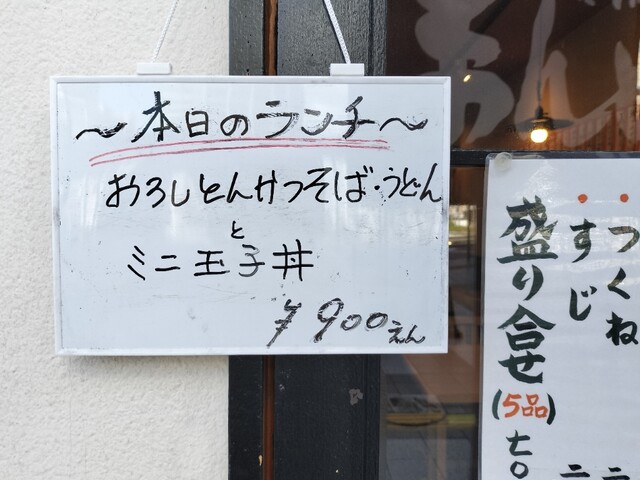 ～本日のランチ～
おろしとんかつそば・うどん
と
ミニ玉子丼
¥900えん
つくね
すじ
盛り合せ
(5品)
七〇